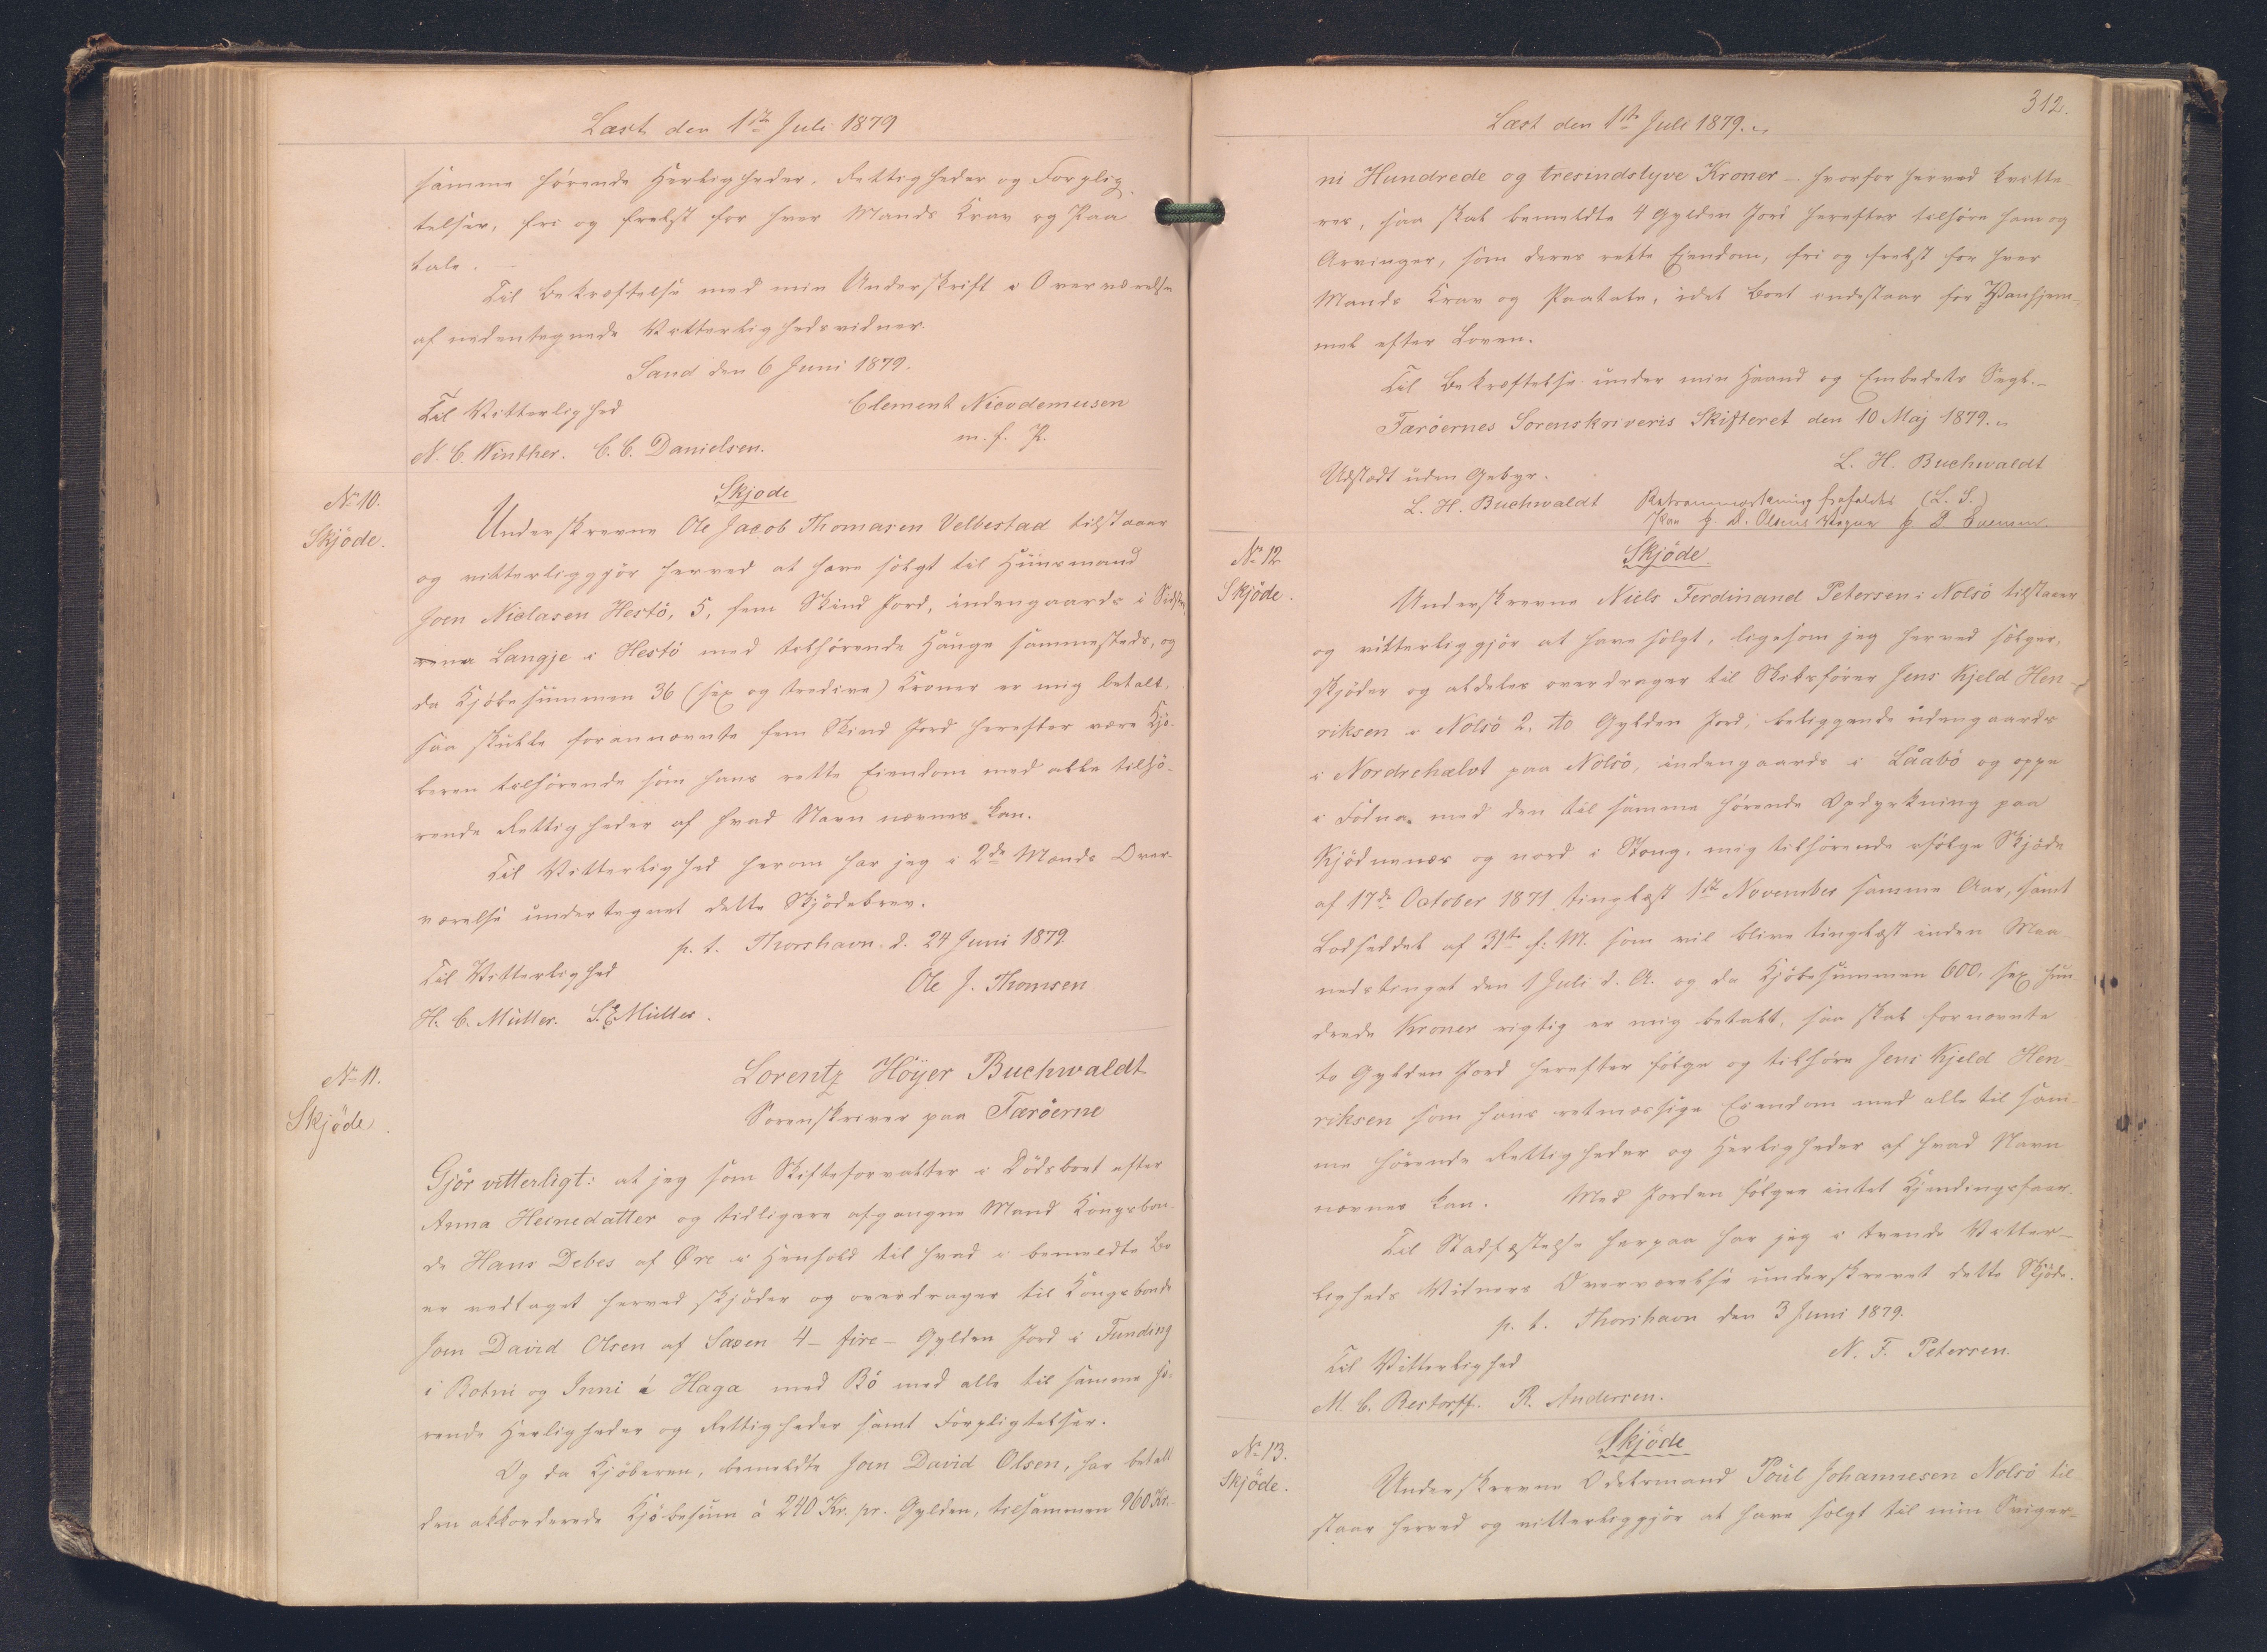 Læst den 1ste Juli 1879
samme hørende Herligheder, Rettigheder og Forplig-
telser, fri og frelst for hver Mands Krav og Paa
tale.
Til Bekræftelse med min Underskrift i Overværelse
af nedentegnede Vitterlighedsvidner.
Sand den 6 Juni 1879.
Til Vitterlighed
Clement Nicodemusen
m. f. P.
N. C. Winther. C. C. Danielsen.
No 10.
Skjøde.
Skjøde
Underskrevne Ole Jacob Thomasen Velbestad tilstaaer
og vitterliggjør herved at have solgt til Huusmand
Joen Niclasen Hestø, 5, fem Skind Jord, indengaards i
Langje i Hestø med tilhørende Hauge sammesteds, og
da Kjøbesummen 36 (sex og tredive) Kroner er mig betalt,
saa skulle forannævnte fem Skind Jord herefter være Kjø-
beren tilhørende som hans rette Eiendom med alle tilhø-
rende Rettigheder af hvad Navn nævnes kan.
Til Vitterlighed herom har jeg i 2de Mænds Over-
værelse undertegnet dette Skjødebrev.
p. t. Thorshavn d. 24 Juni 1879.
Til Vitterlighed
Ole J. Thomsen
H. C. Müller. S. E. Müller.
No 11.
Skjøde.
Lorentz Höyer Buchwaldt
Sorenskriver paa Færøerne
Gjør vitterligt: at jeg som Skifteforvalter i Dødsboet efter
Anna Heinedatter og tidligere afgangne Mand Kongsbon-
de Hans Debes af Øre i Henhold til hvad i bemeldte Bo
er vedtaget herved skjøder og overdrager til Kongsbonde
Joen David Olsen af Saxen 4 - fire - Gylden Jord i Funding
i Botni og Inni á Haga med Bø med alle til samme hø-
rende Herligheder og Rettigheder samt Forpligtelser.
Og da Kjøberen, bemeldte Joen David Olsen, har betalt
den akkorderede Kjøbesum à 240 Kr. pr. Gylden, tilsammen 960 Kr. -
312.
Læst den 1ste Juli 1879.
ni Hundrede og tresindstyve Kroner - hvorfor herved kvitte-
res, saa skal bemeldte 4 Gylden Jord herefter tilhøre ham og
Arvinger, som deres rette Ejendom, fri og frelst for hver
Mands Krav og Paatale, idet Boet indestaar for Vanhjem-
mel efter Loven.
Til Bekræftelse under min Haand og Embedets Segl. -
Færøernes Sorenskriveris Skifteret den 10 Maj 1879.
L. H. Buchwaldt
Udstædt uden Gebyr.
L. H. Buchwaldt
(L. S.)
Paa J. D. Olsens Vegne
No 12
Skjøde.
Skjøde.
Underskrevne Niels Ferdinand Petersen i Nolsø tilstaaer
og vitterliggjør at have solgt, ligesom jeg herved sælger,
skjøder og aldeles overdrager til Skibsfører Jens Kjeld Hen-
riksen i Nolsø 2, to Gylden Jord, beliggende udengaards
i Nordrehælvt paa Nolsø, indengaards i Låabø og oppe
i Fødna, med den til samme hørende Opdyrkning paa
Kjødnenæs og nord i Stong, mig tilhørende ifølge Skjøde
af 17de October 1871 tinglæst 1ste November samme Aar, samt
Lodseddel af 31te f: M. som vil blive tinglæst inden Maa-
nedstinget den 1 Juli d. A. og da Kjøbesummen 600, sex Hun-
drede Kroner rigtig er mig betalt, saa skal fornævnte
to Gylden Jord herefter følge og tilhøre Jens Kjeld Hen-
riksen som hans retmæssige Eiendom med alle til sam-
me hørende Rettigheder og Herligheder af hvad Navn
nævnes kan. Med Jorden følger intet Kjendingsfaar.
Til Stadfæstelse herpaa har jeg i tvende Vitter-
ligheds Vidners Overværelse underskrevet dette Skjøde.
p. t. Thorshavn den 3 Juni 1879.
Til Vitterlighed
N. F. Petersen.
M. C. Restorff. R. Andersen.
No 13.
Skjøde.
Skjøde
Underskrevne Odelsmand Poul Johannesen Nolsø til-
staar herved og vitterliggjør at have solgt til min Sviger-